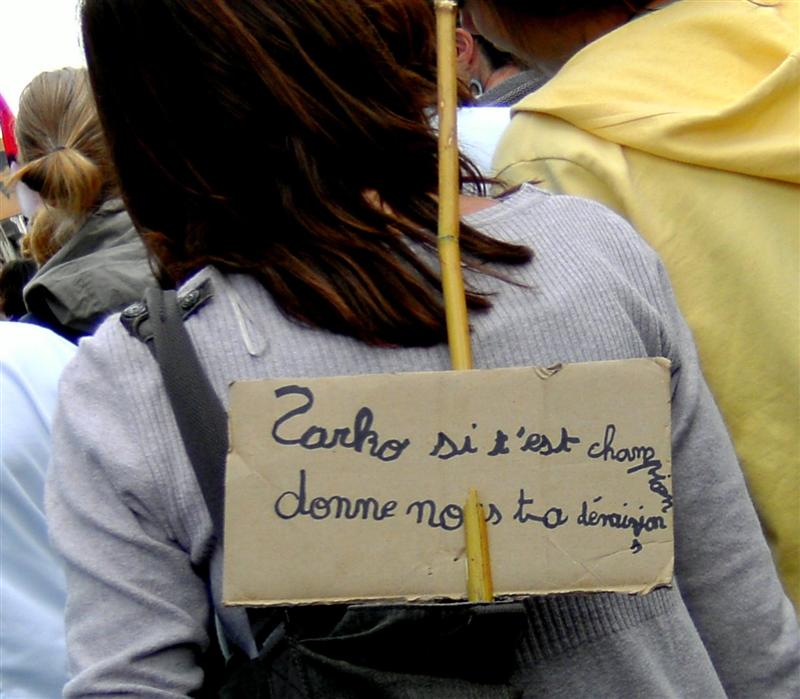 Zarko si t'est champion
donne nous ta démizion
s